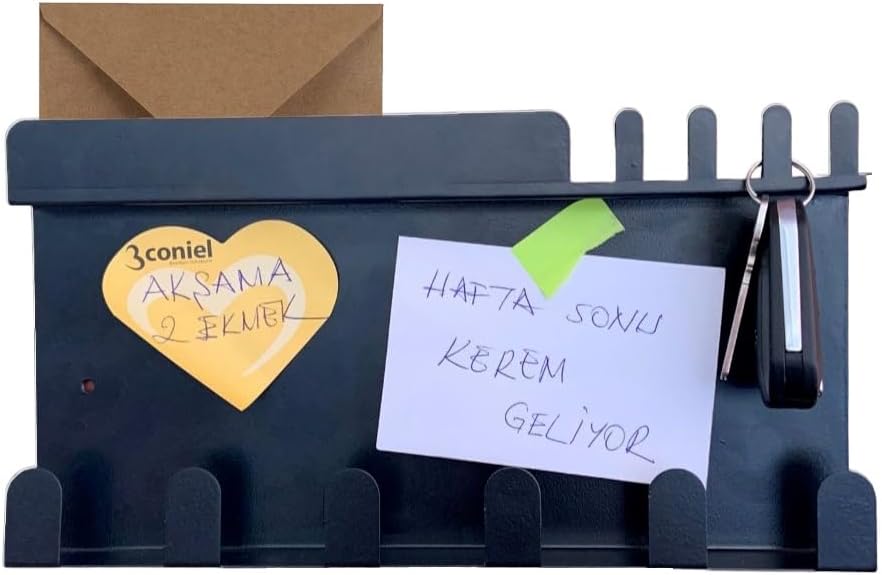 3coniel
AKŞAMA
2 EKMEK
HAFTA SONU
KEREM
GELİYOR